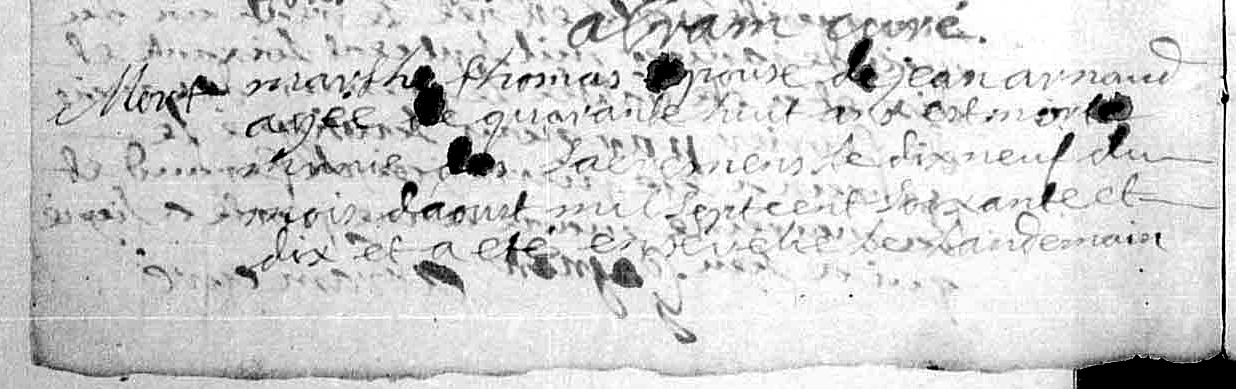 abram curé.
Mort marthe thomas epouse de jean arnaud
agee de quarante huit ans est morte
munie des sacremens le dix neuf du
mois daoust mil sept cent soixante et
dix et a eté ensevelie le landemain